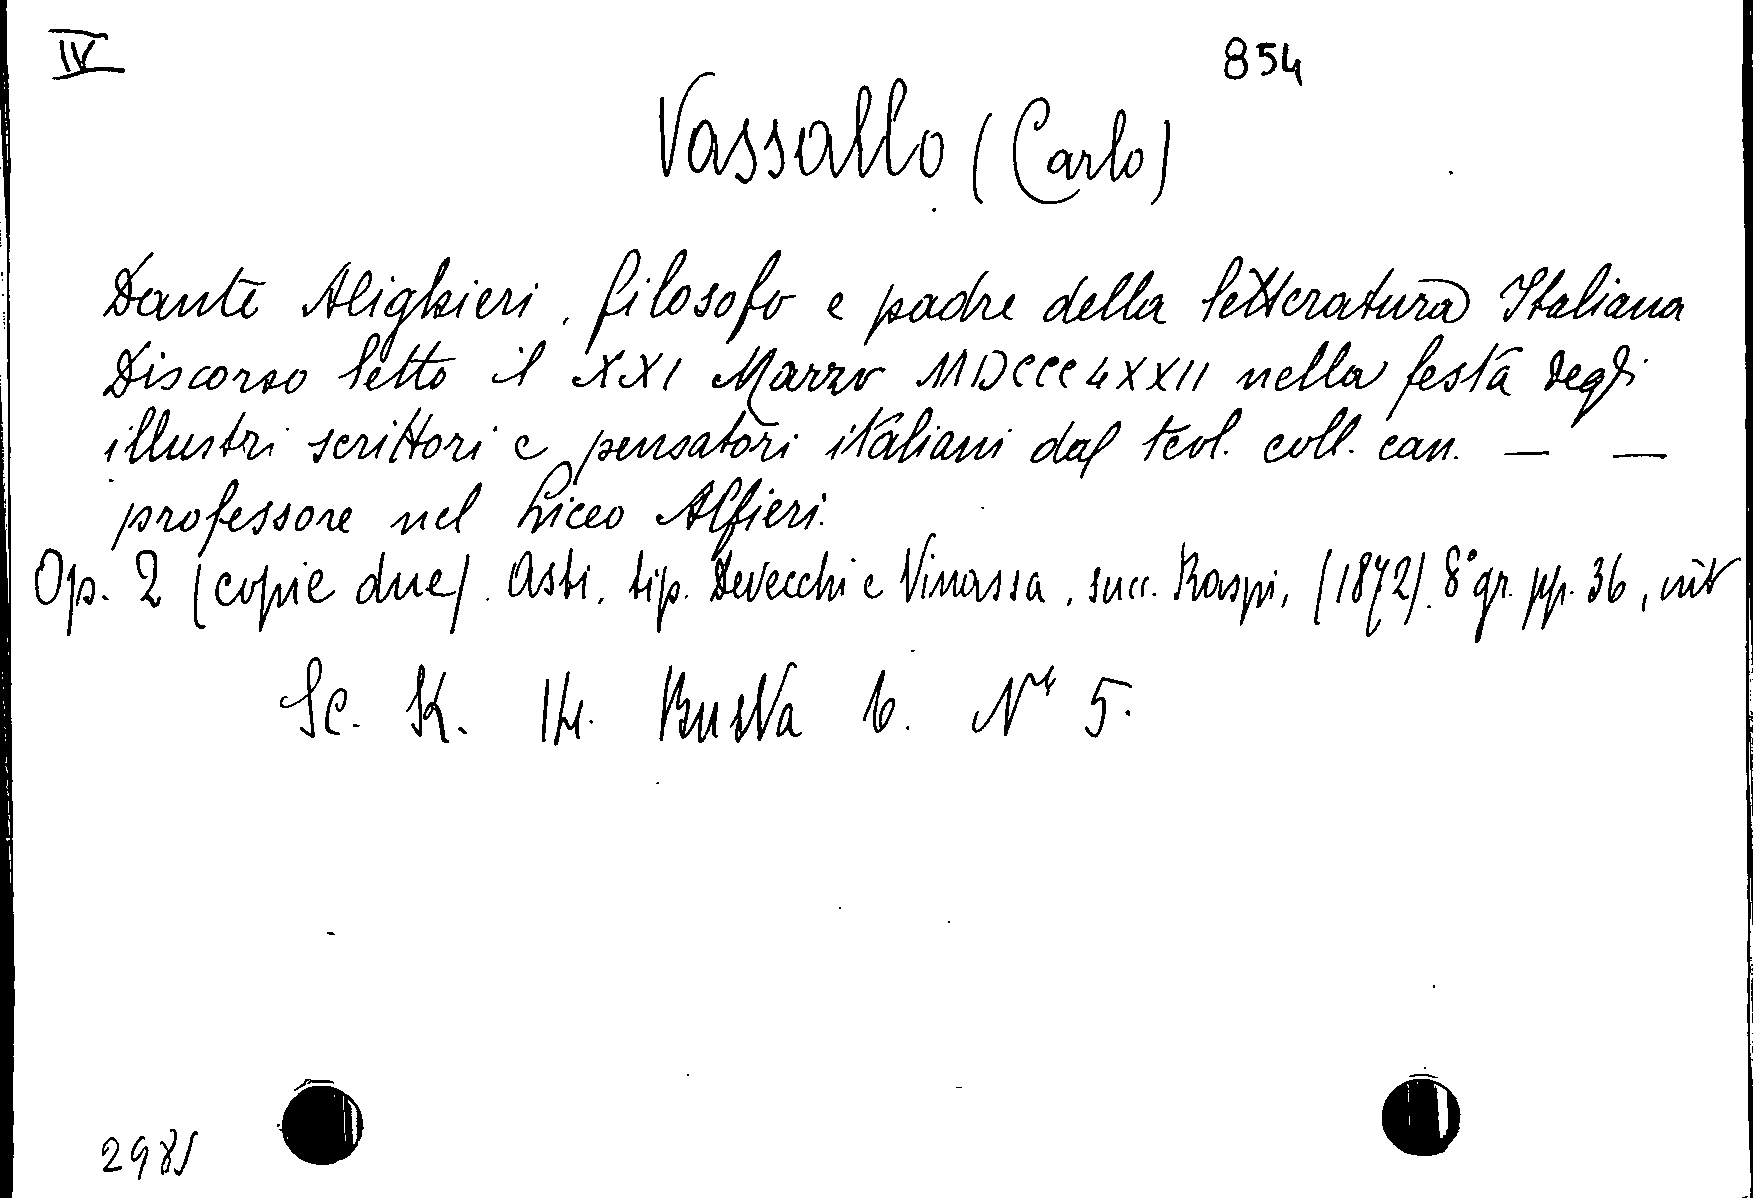 IV 854
Vassallo (Carlo)
Dante Alighieri, filosofo e padre della letteratura Italiana
Discorso letto il XXI Marzo MDCCCLXXII nella festa degli
illustri scrittori e pensatori italiani dal teol. coll. can. — —
professore nel Liceo Alfieri.
Op. 2 (copie due). Asti, tip. Devecchi e Vinassa, succ. Raspi, (1872). 8° gr. pp. 36, nit
Sc. K. 14. Busta 6. N° 5.